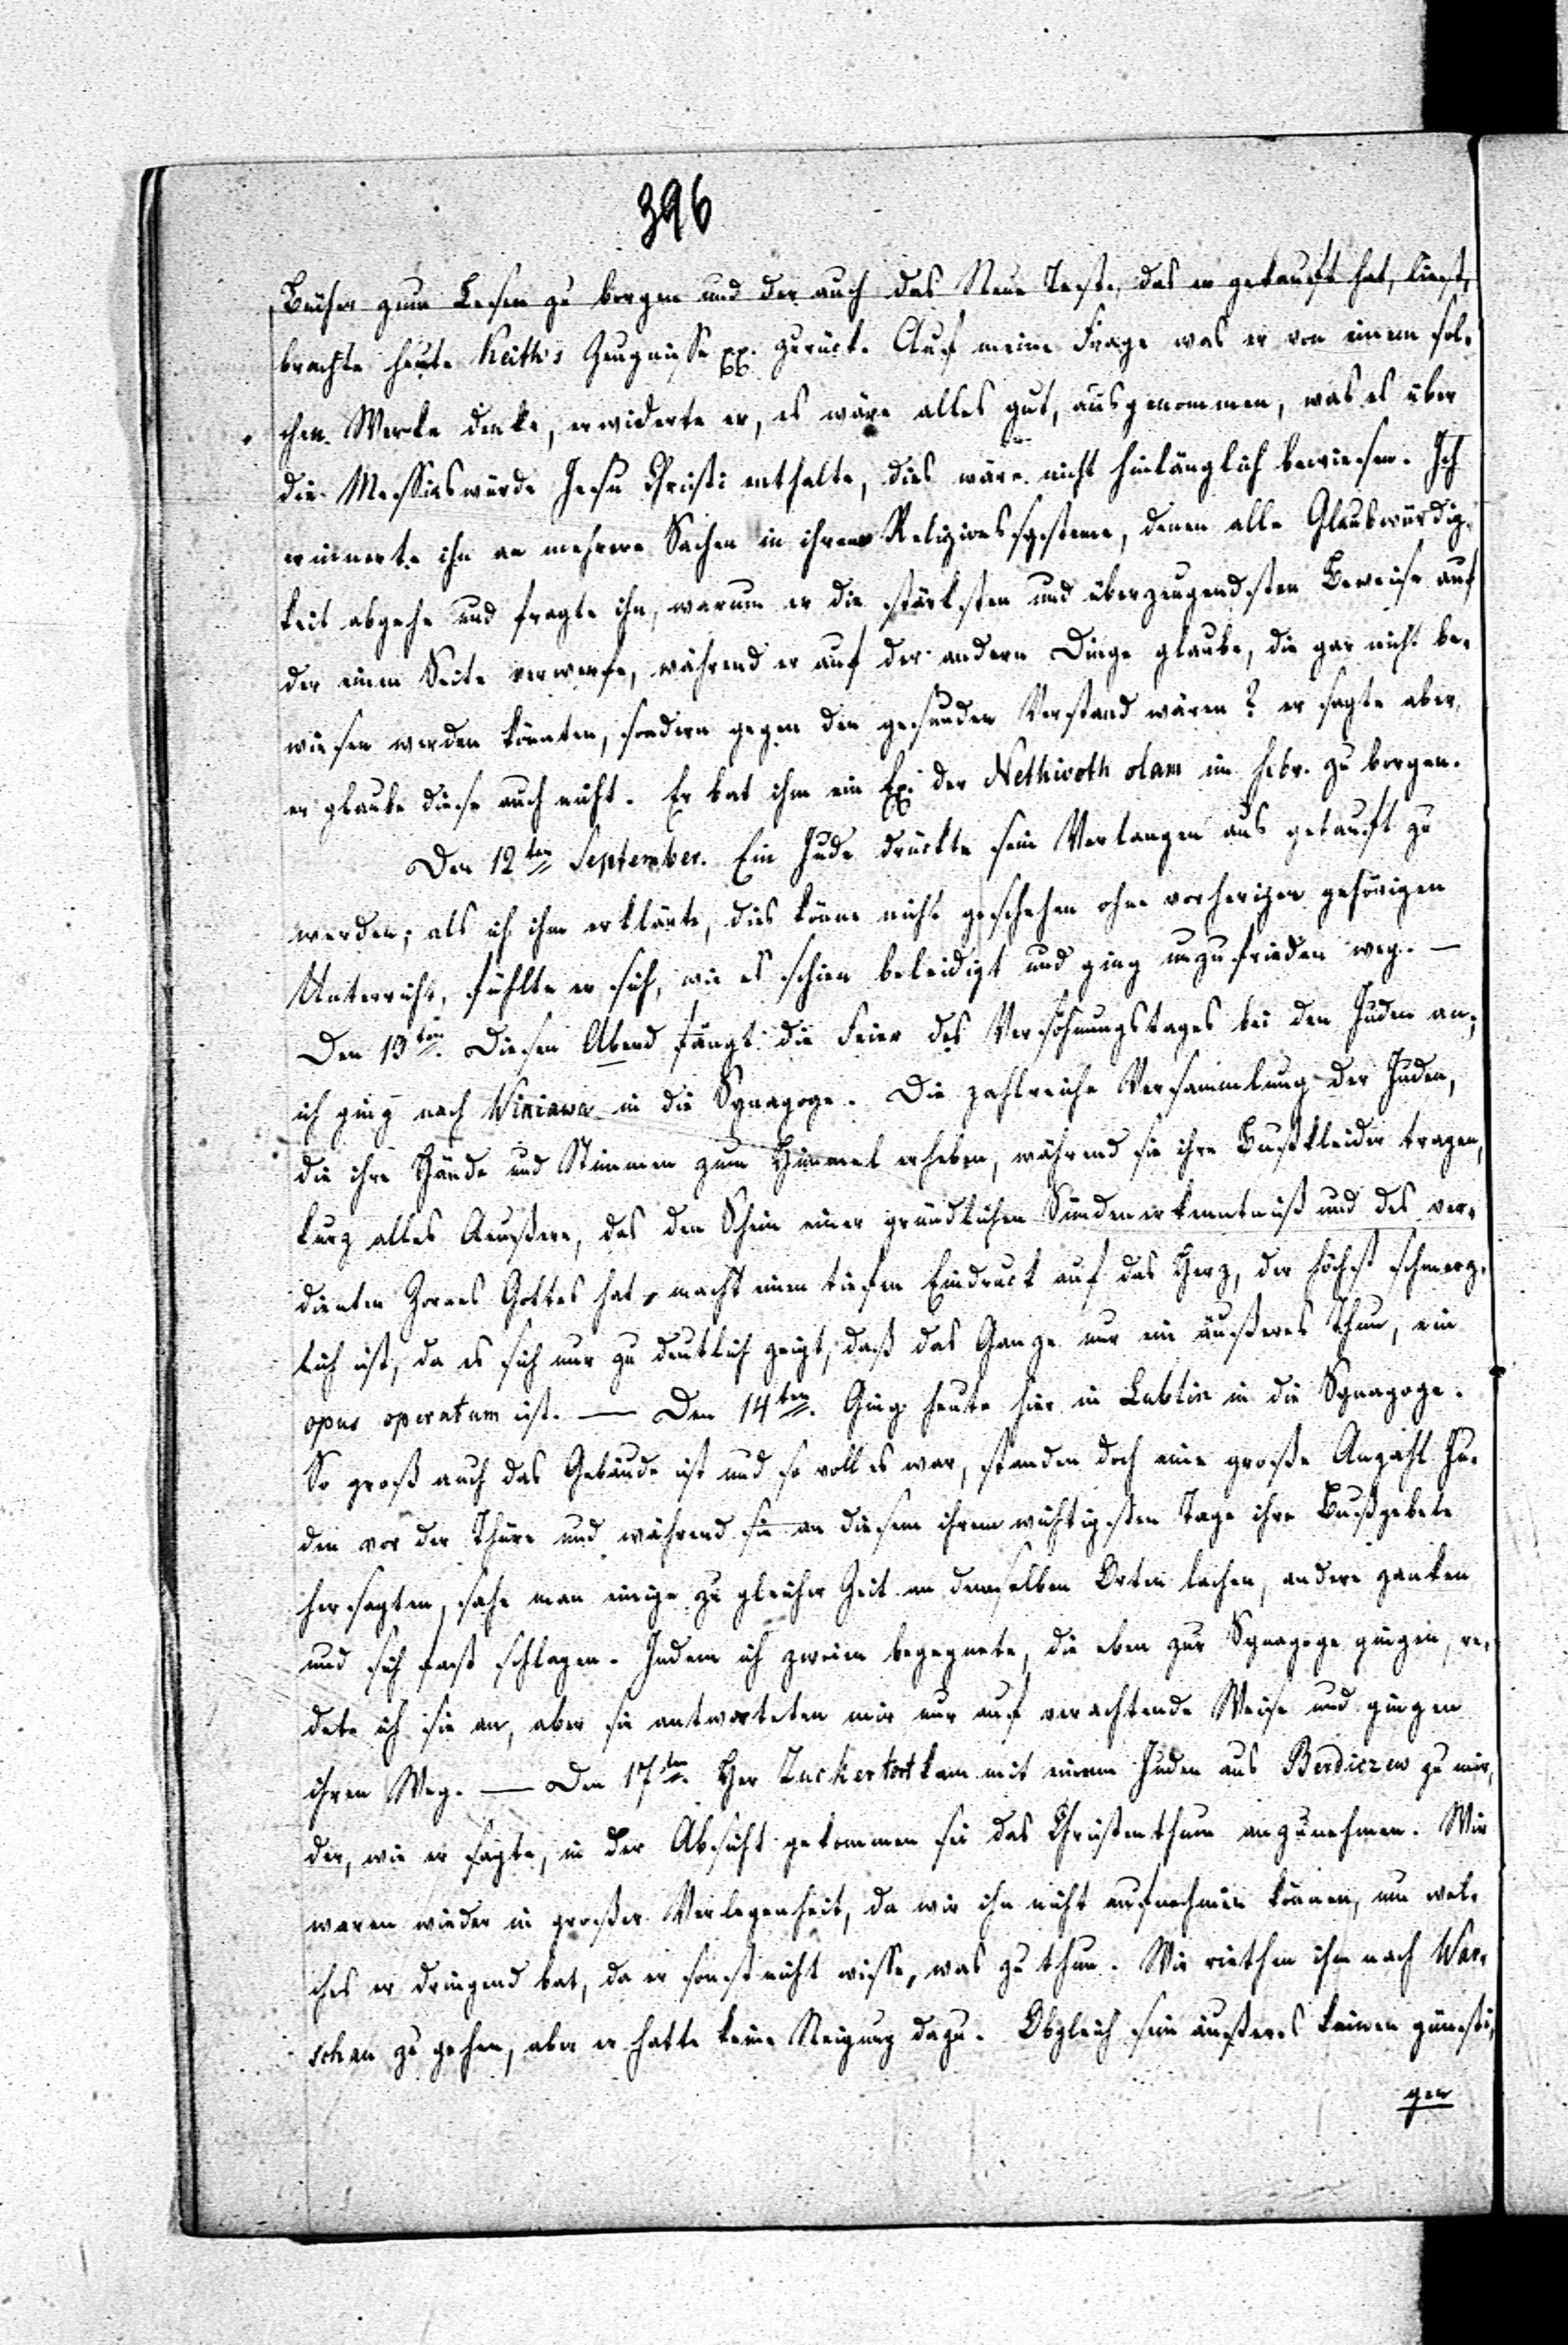 396
Bücher zum Lesen zu borgen und der auch das Neue Test., das er gekauft hat, liest,
brachte heute Keith's Zeugnisse pp. zurück. Auf meine Frage was er von einem sol-
chen Werke denke, erwiderte er, es wäre alles gut, ausgenommen, was es über
die Messiaswürde Jesu Christi enthalte, dies wäre nicht hinlänglich bewiesen. Ich
erinnerte ihn an mehrere Sachen in ihrem Religionssysteme, denen alle Glaubwürdig-
keit abgehe und fragte ihn, warum er die stärksten und überzeugendsten Beweise auf
der einen Seite verwerfe, während er auf der andern Dinge glaube, die gar nicht be-
wiesen werden könnten, sondern gegen den gesunden Verstand wären? er sagte aber,
er glaube diese auch nicht. Er bat ihm ein Ex. der Nethivoth olam im hebr. zu borgen.
Den 12ten September. Ein Jude drückte sein Verlangen aus getauft zu
werden; als ich ihm erklärte, dies könne nicht geschehen ohne vorherigen gehörigen
Unterricht, fühlte er sich, wie es schien beleidigt und ging unzufrieden weg. —
Den 13ten. Diesen Abend fängt die Feier des Versöhnungstages bei den Juden an;
ich ging nach Winiawa in die Synagoge. Die zahlreiche Versammlung der Juden,
die ihre Hände und Stimmen zum Himmel erheben, während sie ihre Bußkleider tragen,
kurz alles Aeußere, das den Schein einer gründlichen Sündenerkenntniß und des ver-
dienten Zornes Gottes hat, macht einen tiefen Eindruck auf das Herz, der höchst schmerz-
lich ist, da es sich nur zu deutlich zeigt, daß das Ganze nur ein äußeres Thun, ein
opus operatum ist. — Den 14ten. Ging heute hier in Lublin in die Synagoge.
So groß auch das Gebäude ist und so voll es war, standen doch eine große Anzahl Ju-
den vor der Thüre und während sie an diesem ihrem wichtigsten Tage ihre Bußgebete
hersagten, sahe man einige zu gleicher Zeit an demselben Orten lachen, andere zanken
und sich fast schlagen. Indem ich zweien begegnete, die eben zur Synagoge gingen, re-
dete ich sie an, aber sie antworteten mir nur auf verachtende Weise und gingen
ihren Weg. — Den 17ten. Her Zuckertort kam mit einem Juden aus Berdiczew zu mir,
der, wie er sagte, in der Absicht gekommen sei das Christenthum anzunehmen. Wir
waren wieder in großer Verlegenheit, da wir ihn nicht aufnehmen können, um wel-
ches er dringend bat, da er sonst nicht wisse, was zu thun. Wir riethen ihm nach War-
schau zu gehen, aber er hatte keine Neigung dazu. Obgleich sein äußeres keinen günsti-
gen